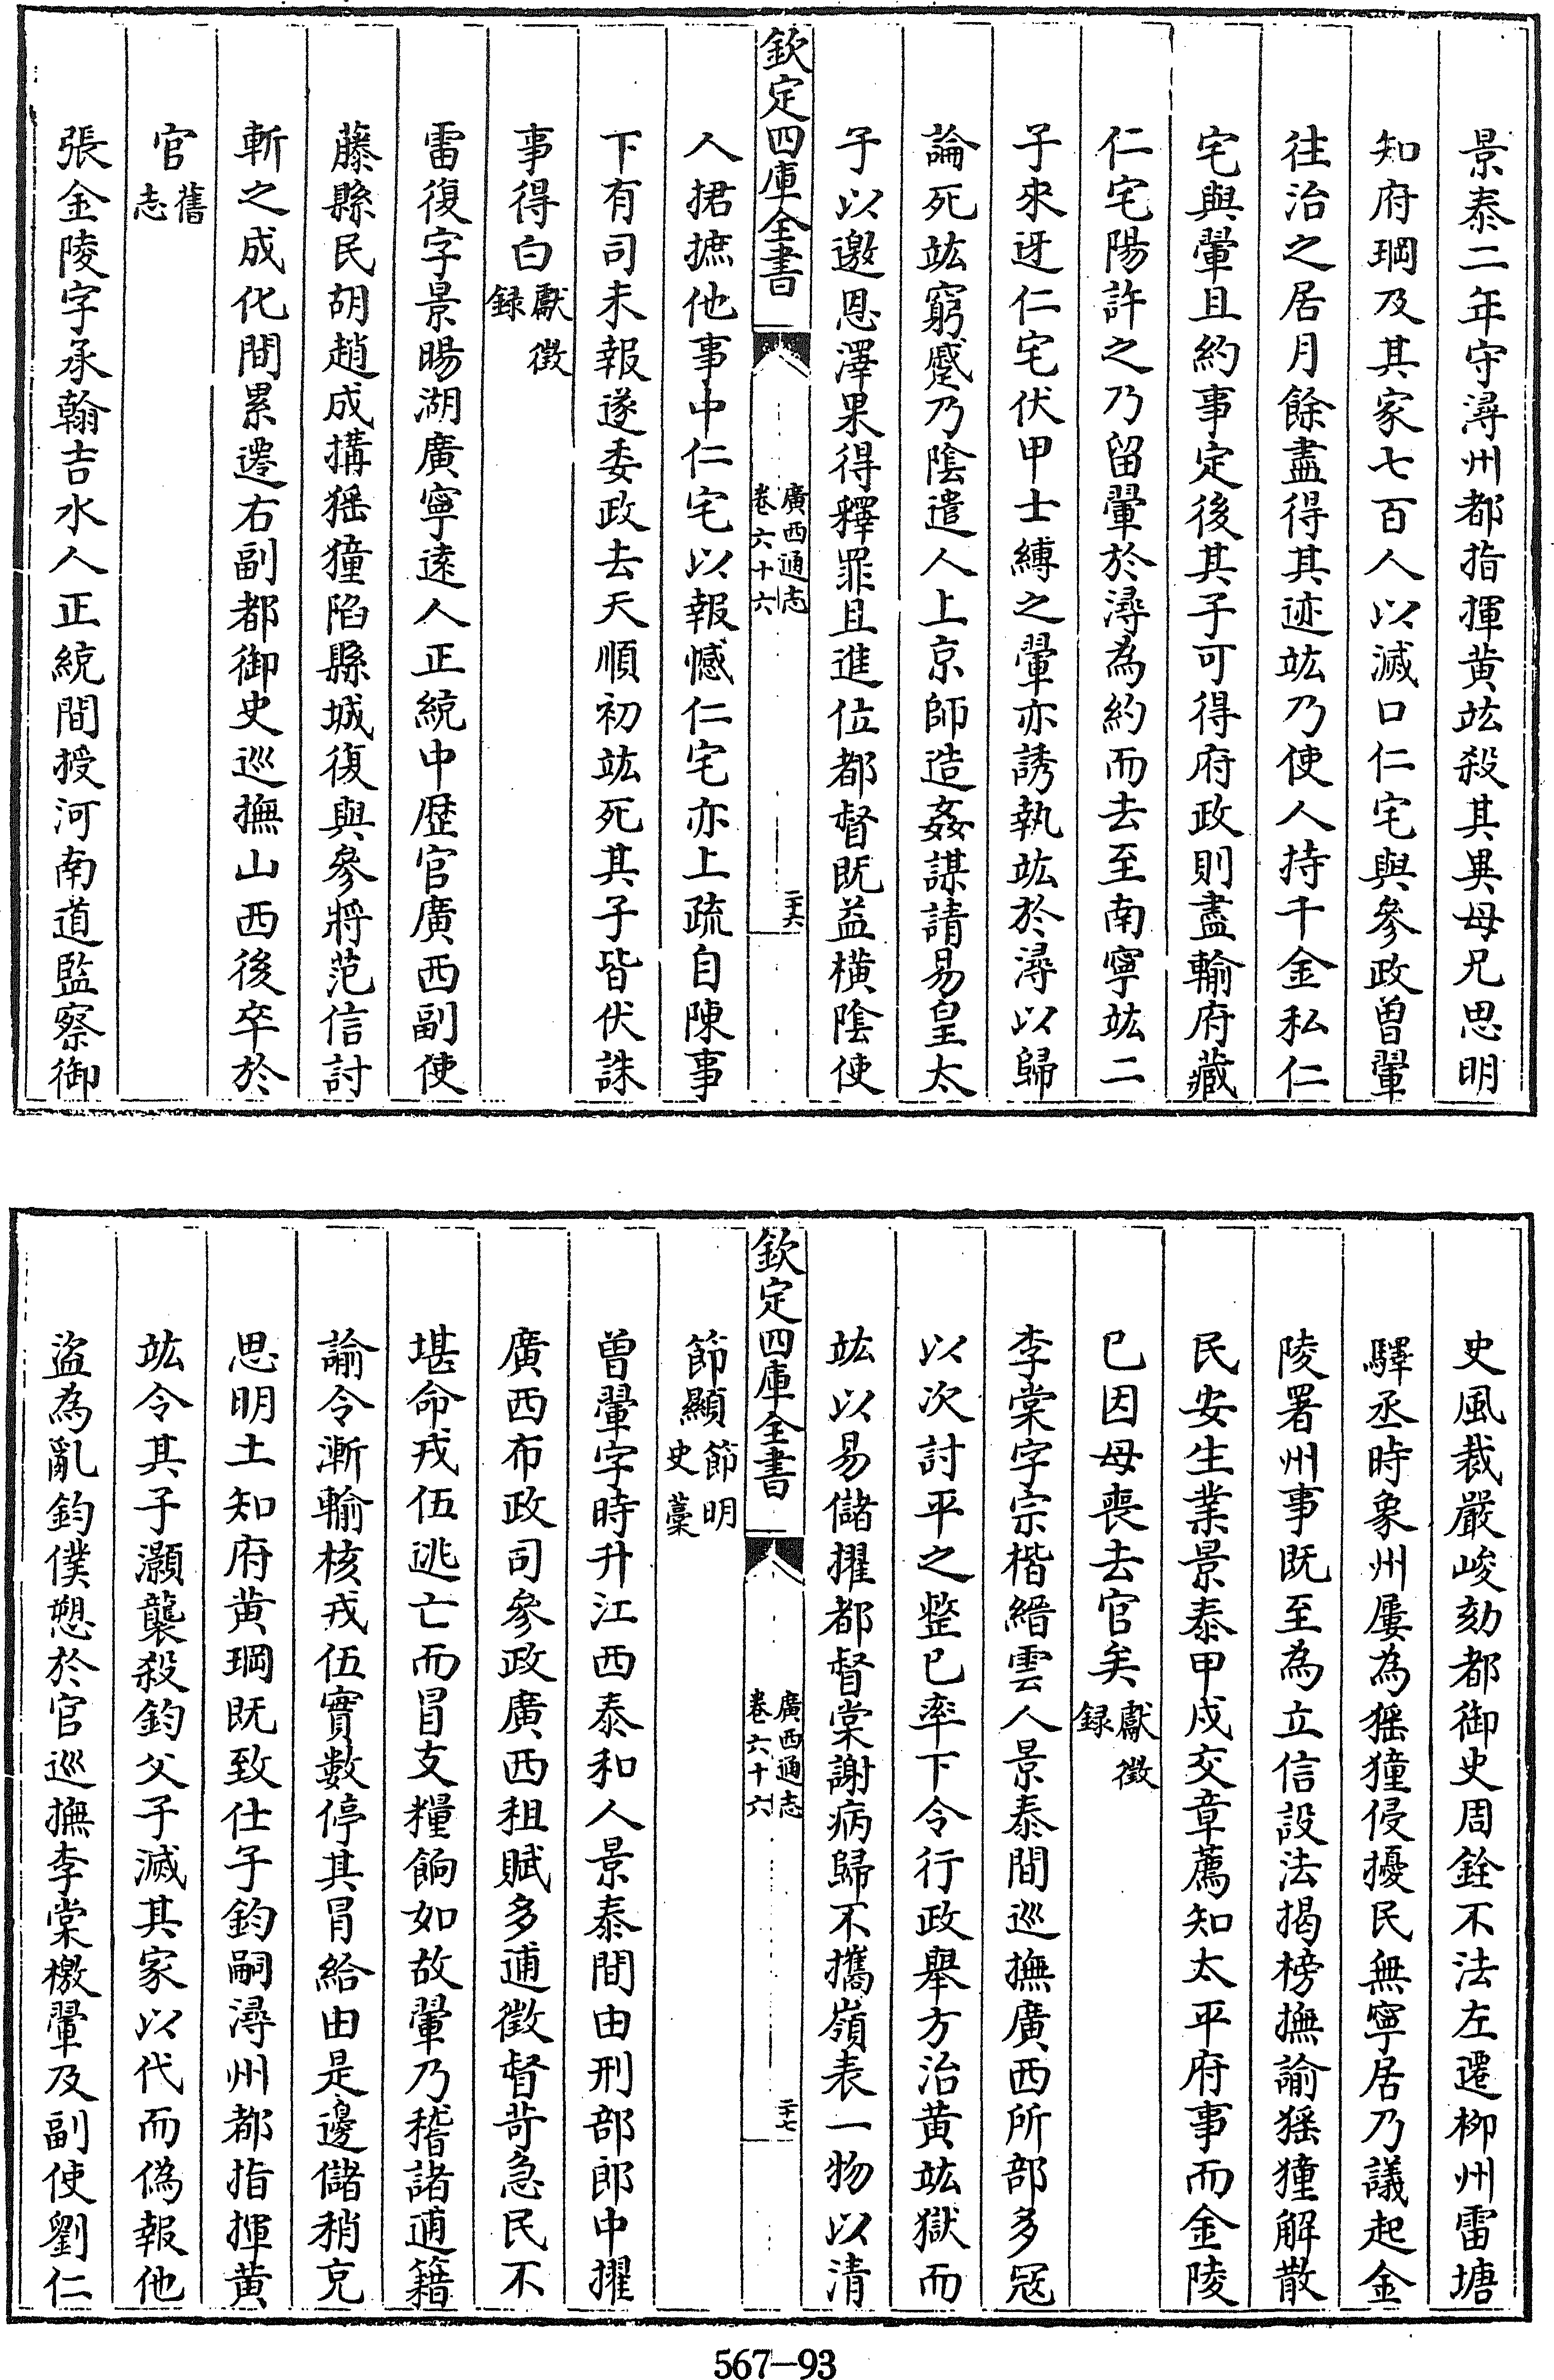 景泰二年守潯州都指揮黄竑殺其異母兄思明
知府㻏及其家七百人以滅口仁宅與參政曽翬
往治之居月餘盡得其迹竑乃使人持千金私仁
宅與翬且約事定後其子可得府政則盡輸府藏
仁宅陽許之乃留翬於潯為約而去至南寧竑二
子來迓仁宅伏甲士縛之翬亦誘執竑於潯以歸
論死竑窮蹙乃陰遣人上京師造姦謀請易皇太
子以邀恩澤果得釋罪且進位都督既益横陰使
欽定四庫全書
廣西通志
卷六十六
二十六
人捃摭他事中仁宅以報憾仁宅亦上疏自陳事
下有司未報遂委政去天順初竑死其子皆伏誅
事得白獻徵録
雷復字景暘湖廣寧逺人正統中歴官廣西副使
藤縣民胡趙成搆猺獞陷縣城復與參將范信討
斬之成化間累遷右副都御史巡撫山西後卒於
官舊志
張金陵字承翰吉水人正統間授河南道監察御
史風裁嚴峻劾都御史周銓不法左遷栁州雷塘
驛丞時象州屢為猺獞侵擾民無寧居乃議起金
陵署州事既至為立信設法揭榜撫諭猺獞解散
民安生業景泰甲戌交章薦知太平府事而金陵
已因母喪去官矣獻徵録
李棠字宗楷縉雲人景泰間巡撫廣西所部多冦
以次討平之整已率下令行政舉方治黄竑獄而
竑以易儲擢都督棠謝病歸不攜嶺表一物以清
欽定四庫全書
廣西通志
卷六十六
二十七
節顯節明史藁
曽翬字時升江西泰和人景泰間由刑部郎中擢
廣西布政司參政廣西租賦多逋徵督苛急民不
堪命戎伍逃亡而冒支糧餉如故翬乃稽諸逋籍
諭令漸輸核戎伍實數停其冐給由是邊儲稍充
思明土知府黄㻏既致仕子鈞嗣潯州都指揮黄
竑令其子灝襲殺鈞父子滅其家以代而偽報他
盜為亂鈞僕愬於官巡撫李棠檄翬及副使劉仁
567—93